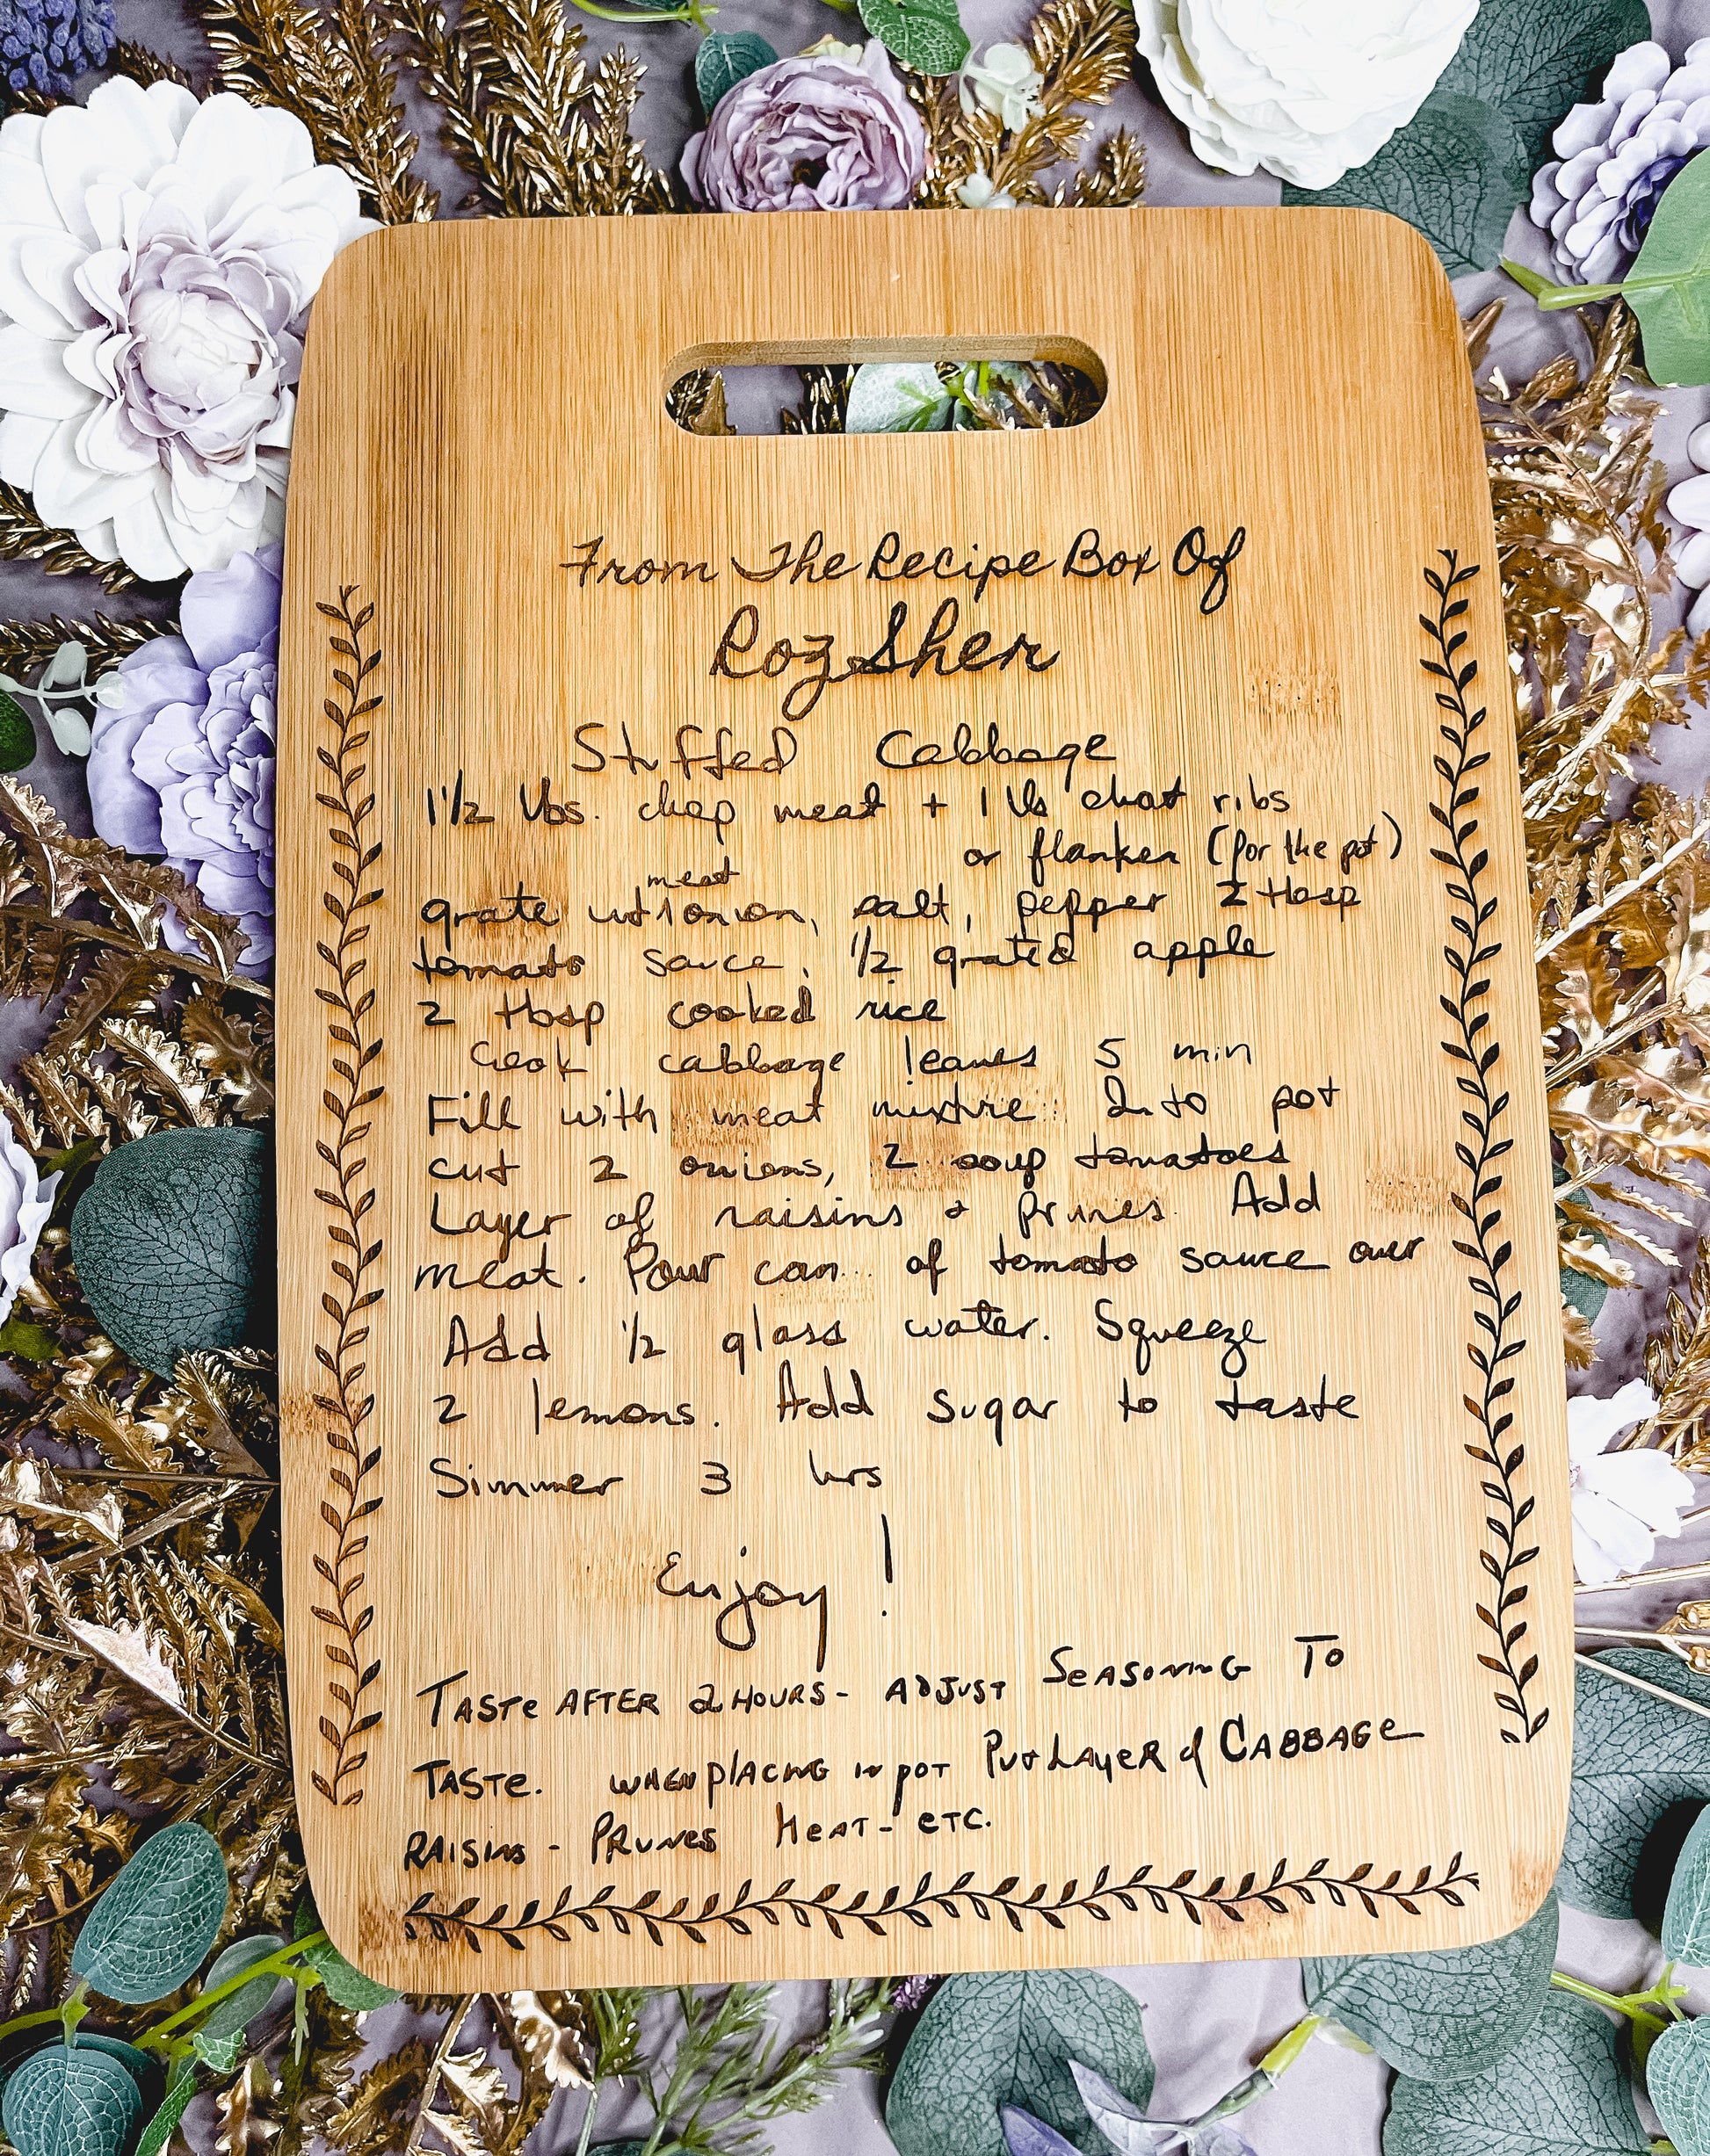 From The Recipe Box Of
Roz Sher
Stuffed Cabbage
1 1/2 lbs. chop meat + 1 lb short ribs
or flanken (for the pot)
meat
grate with onion, salt, pepper 2 tbsp
tomato sauce, 1/2 grated apple
2 tbsp cooked rice
Cook cabbage leaves 5 min
Fill with meat mixture Into pot
cut 2 onions, 2 soup tomatoes
Layer of raisins + prunes. Add
meat. Pour can of tomato sauce over
Add 1/2 glass water. Squeeze
2 lemons. Add sugar to taste
Simmer 3 hrs
Enjoy!
TASTE AFTER 2 HOURS - ADJUST SEASONING TO
TASTE. WHEN PLACING IN POT PUT LAYER of CABBAGE
RAISINS - PRUNES MEAT - ETC.